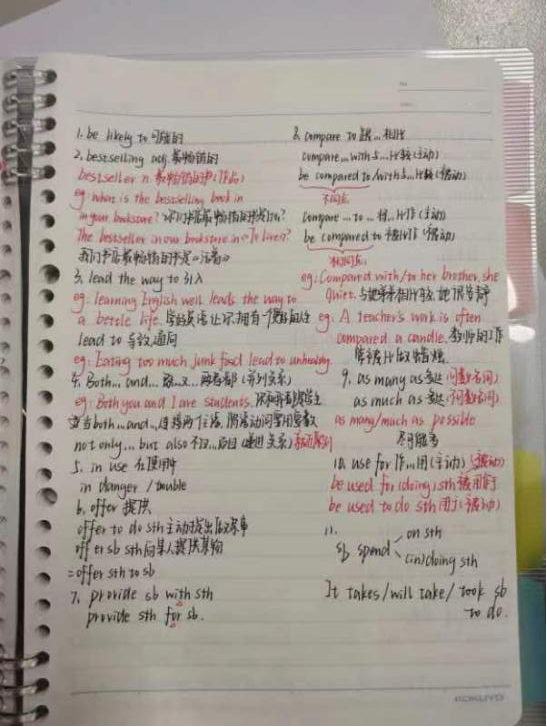 1. be likely to 可能的
2. bestselling adj. 最畅销的
bestseller n. 最畅销的书(作品)
eg: what is the bestselling book in
in your bookstore? 你们书店最畅销的书是什么?
The bestseller in our bookstore is 《To live》?
我们书店最畅销的书是《活着》
3. lead the way to 引入
eg: learning English well leads the way to
a bettle life. 学好英语让你拥有一个更好的生活
lead to 导致,通向
eg: Eating too much junk food lead to unhealthy.
4. Both... and... 两者都 (并列关系)
eg: Both you and I are students. 你和我都是学生
当 both...and...连接两个主语, 谓语动词要用复数
not only... but also 不仅...而且 (递进关系)
5. in use 在使用中
in danger / trouble
6. offer 提供
offer to do sth 主动提出做某事
offer sb sth 向某人提供某物
=offer sth to sb
7. provide sb with sth
provide sth for sb.
8. compare to 跟...相比
compare...with 与...比较(主动)
be compared to/with 与...比较(被动)
不同点
compare ... to ... 将...比作(主动)
be compared to 被比作(被动)
相同点
eg: Compared with/to her brother, she
Quiet. 与她哥哥相比较, 她很安静
eg: A teacher's work is often
compared a candle. 教师的工作
常被比做蜡烛.
9. as many as 多达 (可数名词)
as much as 多达 (不可数名词)
as many/much as possible
尽可能多
10. use for 作...用(主动)
be used for (doing) sth 被用于
be used to do sth 用于(被动)
11.
sb spend on sth
(in) doing sth
It takes/will take/took sb
to do.
KOKUYO